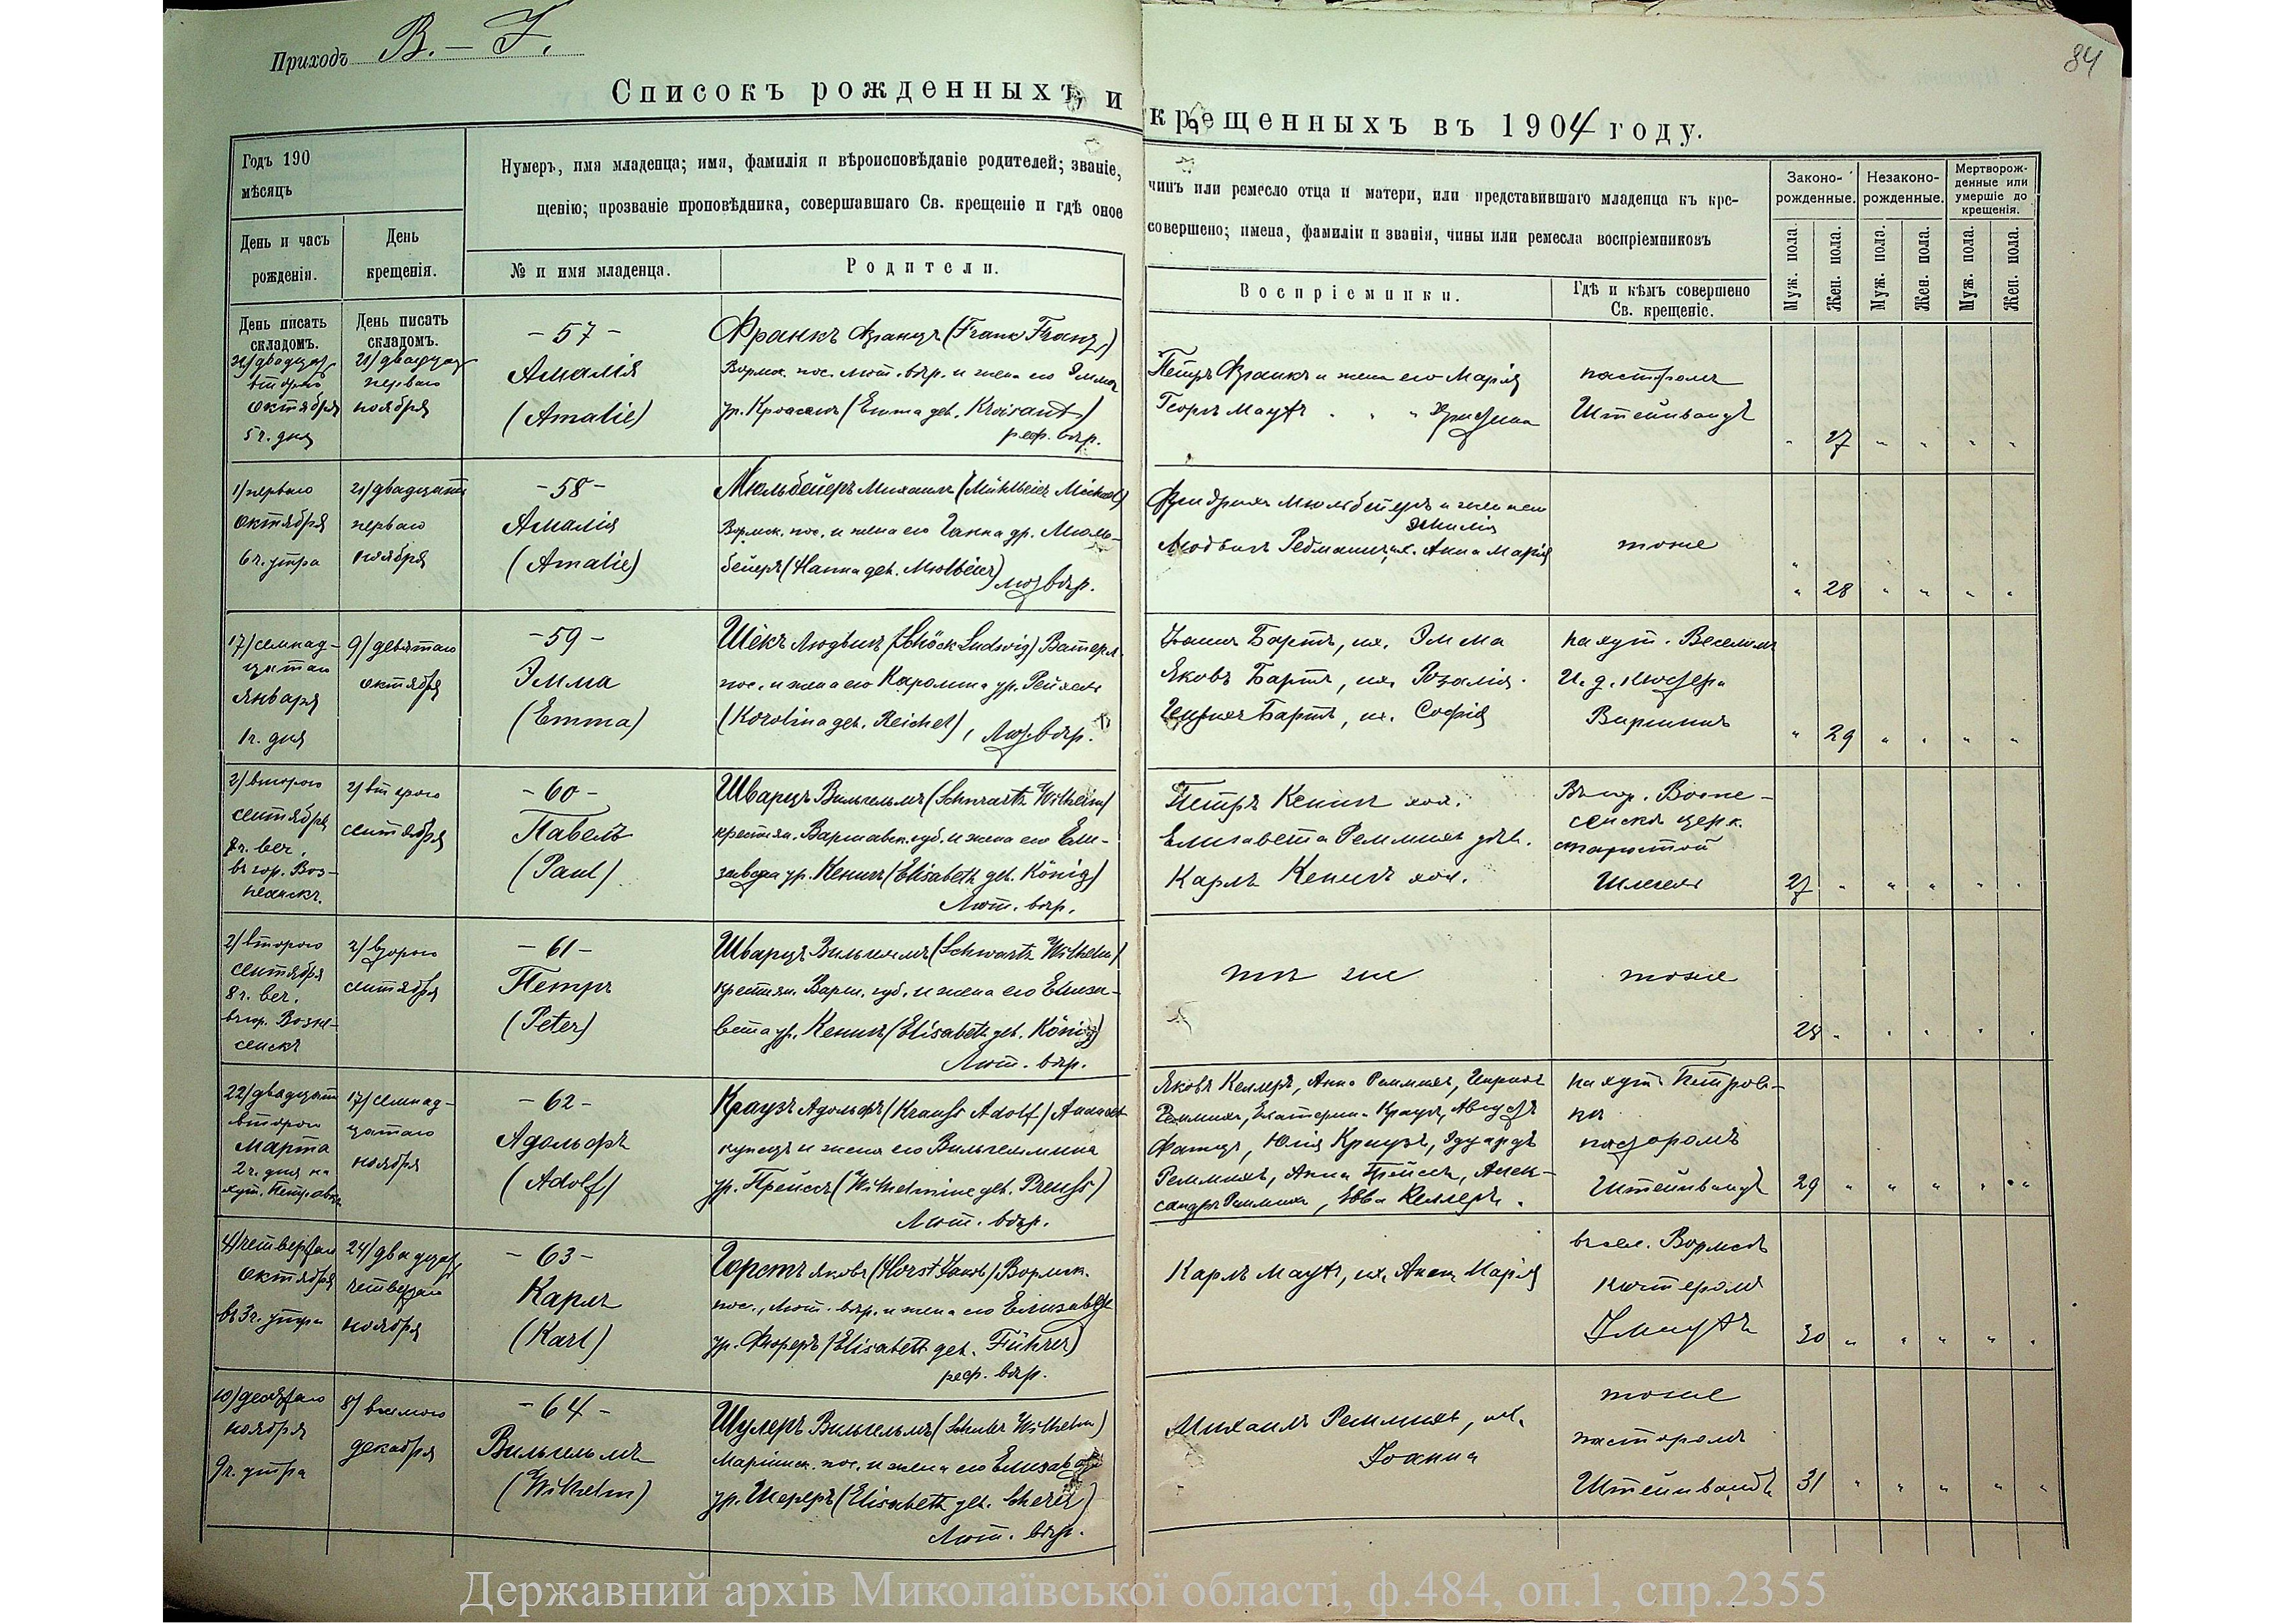 Приходъ В.–І.
84
Списокъ рожденныхъ и крещенныхъ въ 1904 году.
Годъ 190
мѣсяцъ
День и часъ
рожденія.
День
крещенія.
Нумеръ, имя младенца; имя, фамилія и вѣроисповѣданіе родителей; званіе, чинъ или ремесло отца и матери, или представившаго младенца къ кре-
щенію; прозваніе проповѣдника, совершавшаго Св. крещеніе и гдѣ оное совершено; имена, фамиліи и званія, чины или ремесла воспріемниковъ
№ и имя младенца.
Родители.
Воспріемники.
Гдѣ и кѣмъ совершено
Св. крещеніе.
Законо-
рожденные.
Незаконо-
рожденные.
Мертворож-
денные или
умершіе до
крещенія.
Муж. пола.
Жен. пола.
Муж. пола.
Жен. пола.
Муж. пола.
Жен. пола.
День писать
складомъ.
День писать
складомъ.
октября
5 ч. дня
21/двадцать
перваго
ноября
– 57 –
Амалія
(Amalie)
Франкъ Францъ (Frank Franz)
Вормс. пос. лют. вѣр. и жена его Эмма
ур. (Emma geb. Kroisant)
реф. вѣр.
Петръ Франкъ и жена его Марія
Георгъ Маутъ " " Христина
пасторомъ
Штейнвандъ
27
1/перваго
октября
6 ч. утра
21/двадцать
перваго
ноября
– 58 –
Амалія
(Amalie)
Мюльбейеръ Михаилъ (Mühlbeier Michael)
Вормск. пос. и жена его Ганна ур. Мюль-
бейеръ (Hanna geb. Mühlbeier) лют. вѣр.
Фридрихъ Мюльбейеръ и жена его
Эмилія
Людвигъ Редманъ, их. Анна Марія
тоже
28
17/семнад-
цатаго
января
1 ч. дня
9/девятаго
октября
– 59 –
Эмма
(Emma)
Шёкъ Людвигъ (Schöck Ludwig) Ватерл.
пос. и жена его Каролина ур. Рейхель
(Karolina geb. Reichel), лют. вѣр.
Бартъ, их. Эмма
Яковъ Бартъ, их. Розалія.
Генрихъ Бартъ, их. Софія
на хут. Веселомъ
И. д. кюстера
29
2/второго
сентября
8 ч. веч.
въ гор. Воз-
2/второго
сентября
– 60 –
Павелъ
(Paul)
Шварцъ Вильгельмъ (Schwartz Wilhelm)
крестьян. Варшавск. губ. и жена его Ели-
завета ур. Кенигъ (Elisabeth geb. König)
Лют. вѣр.
Петръ Кенигъ хол.
Елизавета Реммихъ дѣв.
Карлъ Кенигъ хол.
Въ гор. Возне-
сенскѣ церк.
старостой
27
2/второго
сентября
8 ч. веч.
въ гор. Возне-
сенскѣ
2/второго
сентября
– 61 –
Петръ
(Peter)
Шварцъ Вильгельмъ (Schwartz Wilhelm)
крестьян. Варш. губ. и жена его Елиза-
вета ур. Кенигъ (Elisabeth geb. König)
Лют. вѣр.
тѣ же
тоже
28
22/двадцать
второго
марта
2 ч. дня на
хут. Петровкѣ
17/семнад-
цатаго
ноября
– 62 –
Адольфъ
(Adolf)
Краузъ Адольфъ (Krauss Adolf)
купецъ и жена его Вильгельмина
ур. Прейсъ (Wilhelmine geb. Preuss)
Лют. вѣр.
Яковъ Келлеръ, Анна Реммихъ, Генрихъ
Реммихъ, Екатерина Краузъ, Августъ
Юлія Краузъ, Эдуардъ
Реммихъ, Анна Прейсъ, Алек-
сандръ Реммихъ, Ева Келлеръ.
на хут. Петров-
кѣ
пасторомъ
Штейнвандъ
29
4/четвертаго
октября
въ 3 ч. утра
24/двадцать
четвертаго
ноября
– 63 –
Карлъ
(Karl)
Горстъ Яковъ (Horst Jakob) Вормск.
пос., Лют. вѣр. и жена его Елизавета
ур. Фюреръ (Elisabeth geb. Führer)
реф. вѣр.
Карлъ Маутъ, их. Анна Марія
въ кол. Вормсъ
кюстеромъ
30
10/десятаго
ноября
9 ч. утра
8/восьмого
декабря
– 64 –
Вильгельмъ
(Wilhelm)
Шулеръ Вильгельмъ (Schuler Wilhelm)
Маріинск. пос. и жена его Елизавета
ур. Шереръ (Elisabeth geb. Scherer)
Лют. вѣр.
Михаилъ Реммихъ, их.
Іоанна
тоже
пасторомъ
Штейнвандъ
31
Державний архів Миколаївської області, ф.484, оп.1, спр.2355